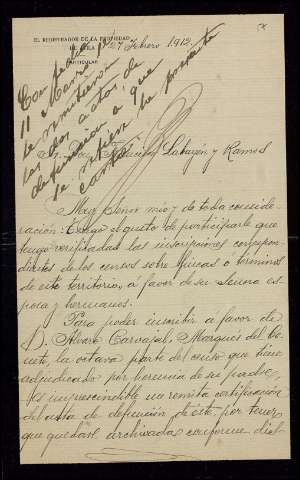 EL REGISTRADOR DE LA PROPIEDAD
DE
PARTICULAR
27 Febrero 1912
Con fecha
11 Marzo
se remitieron
las dos actas de
defunción a que
se refiere la presente
carta
Sr. Don Labayen y Ramos
Muy Señor mio y de toda conside
ración: Tengo el gusto de participarle que
tengo verificadas las inscripciones correspon-
dientes de los censos sobre fincas o terminos
de este territorio, a favor de su Señora es
posa y hermanos.
Para poder inscribir a favor de
D. Alvaro Carvajal, Marques del
la octava parte del censo que tiene
adjudicado por herencia de su padre,
es imprescindible me remita certificación
del acta de defunción de éste, por tener
que quedar archivada conforme